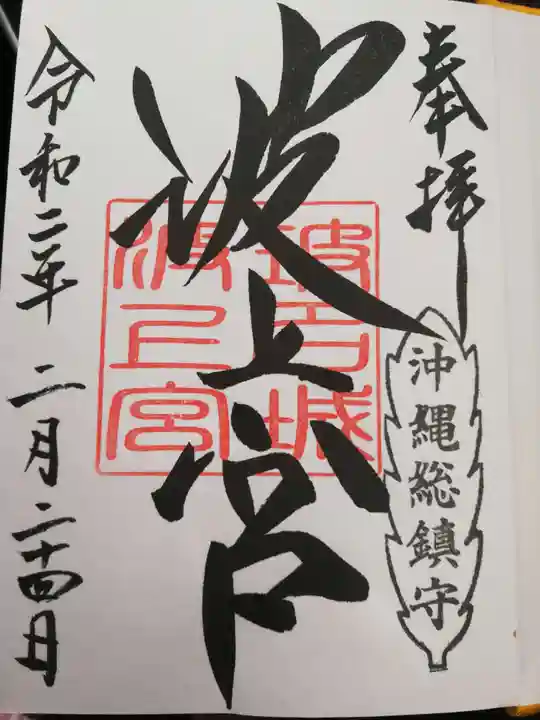 奉拝
沖縄総鎮守
波上宮
波上宮
令和二年 二月二十四日